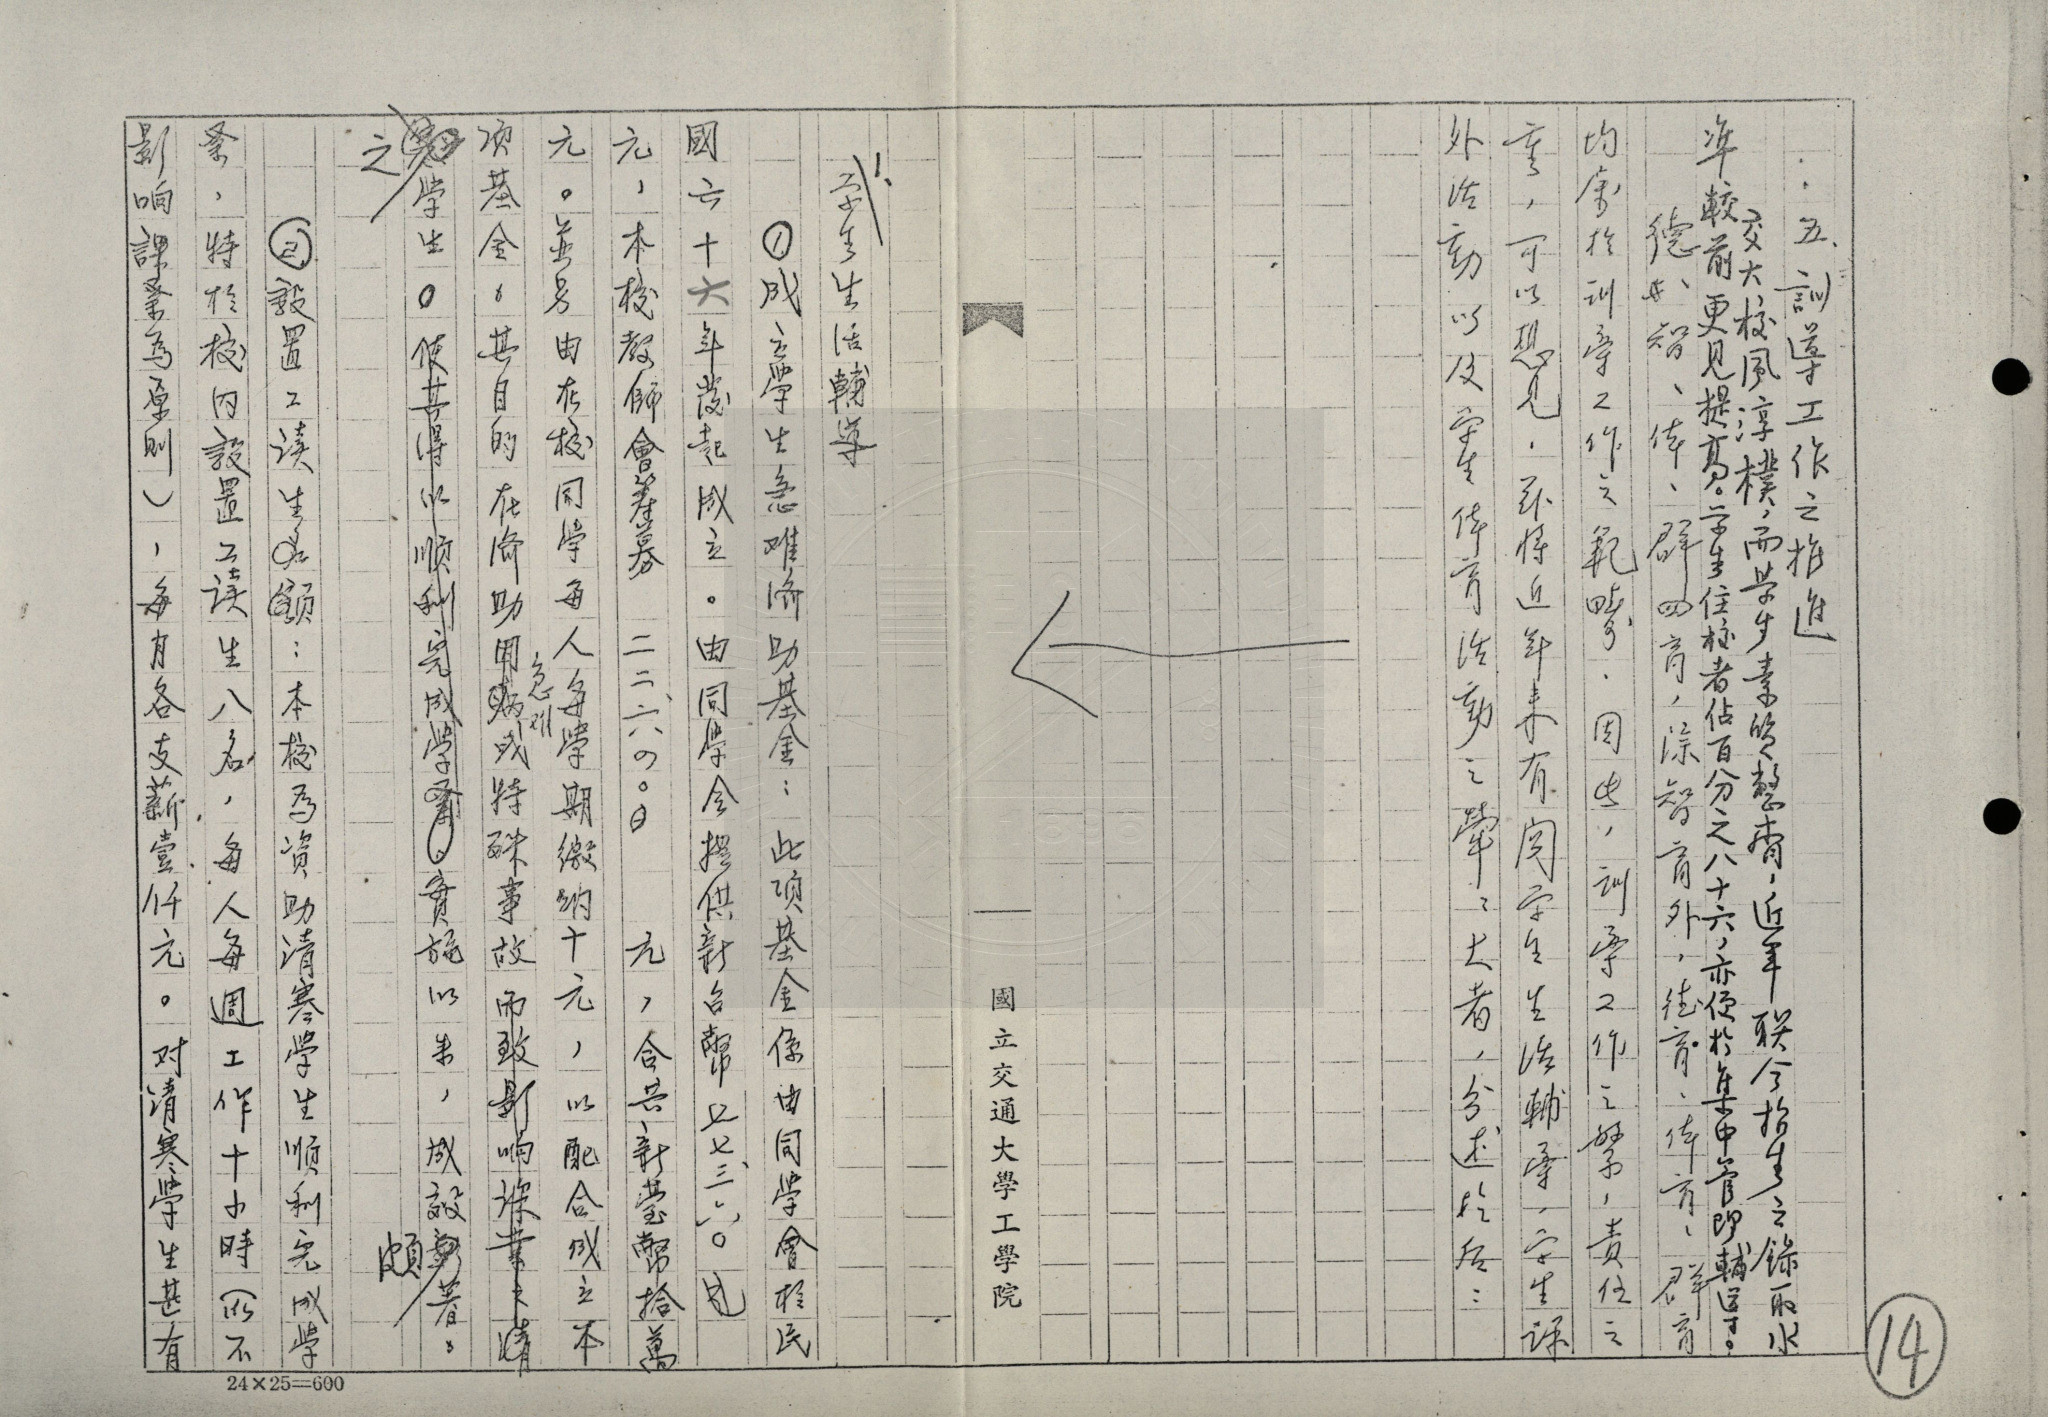 五、訓導工作之推進
交大校風淳樸，而學生素質整齊，近年联合招生之錄取水
準較前更見提高。学生住校者佔百分之八十六，亦便於集中管理輔导。
德、智、体、群四育，除智育外，德育、体育、群育
均屬於訓導工作之範疇．因此，訓導工作之繁，責任之
重，可以想見．茲將近年来有関学生生活輔導，学生課
外活動以及学生体育活動之犖犖大者，分述於后：
國立交通大學工學院
1.学生生活輔导
①成立學生急难濟助基金：此项基金係由同學會於民
國六十六年發起成立。由同學会提供新台幣七七、三六〇元
元，本校教師會筹募二二、六四〇元，合共新臺幣拾萬
元。並另由在校同學每人每學期繳納十元，以配合成立本
项基金。其目的在濟助因病急难或特殊事故而致影响課業之清
寒學生。使其得以順利完成學業。實施以来，成設著。
之
頗
②設置工读生名额：本校為資助清寒學生順利完成学
業，特於校内設置工读生八名，每人每週工作十小時（以不
影响課業為原則），每月各支薪壹仟元。对清寒學生甚有
24×25=600
14